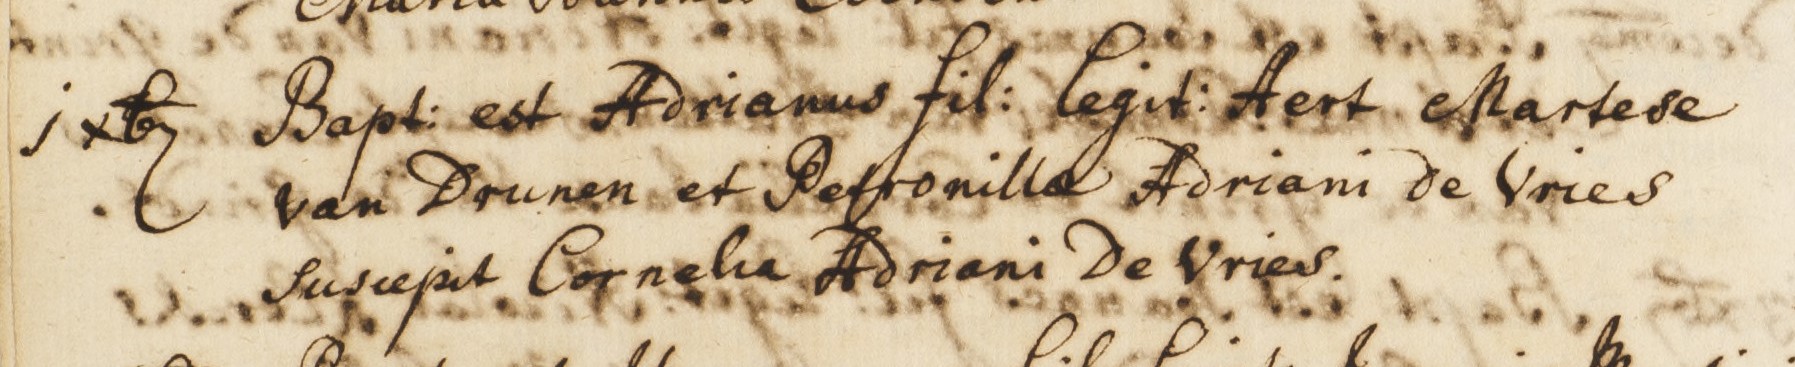 1 xbr Bapt: est Adrianus fil: legit: Aert Martese
van Drunen et Petronilla Adriani de Vries
suscepit Cornelia Adriani De Vries.